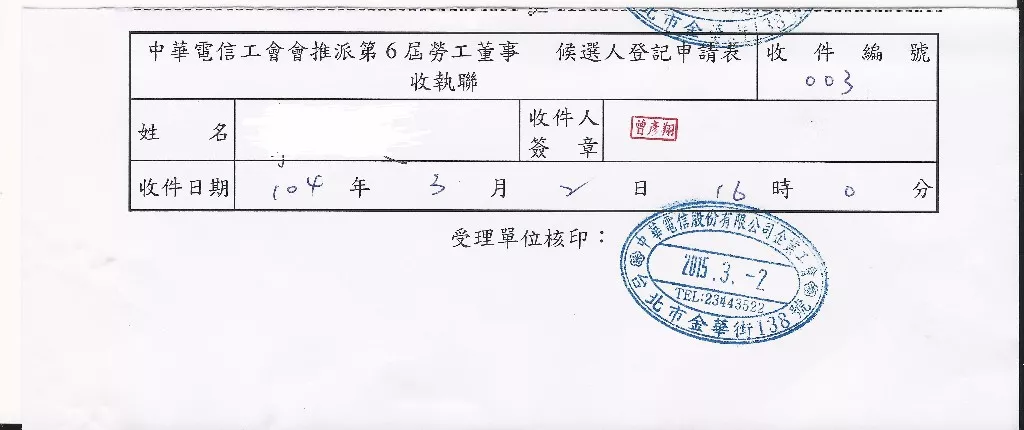 北市金華街138
中華電信工會會推派第6屆勞工董事 候選人登記申請表
收執聯
收件編號
003
姓名
收件人
簽章
曾彥翔
收件日期 104年 3月 2日 16時 0分
受理單位核印：
中華電信股份有限公司企業工會
2015.3.-2
TEL:23443522
台北市金華街138號